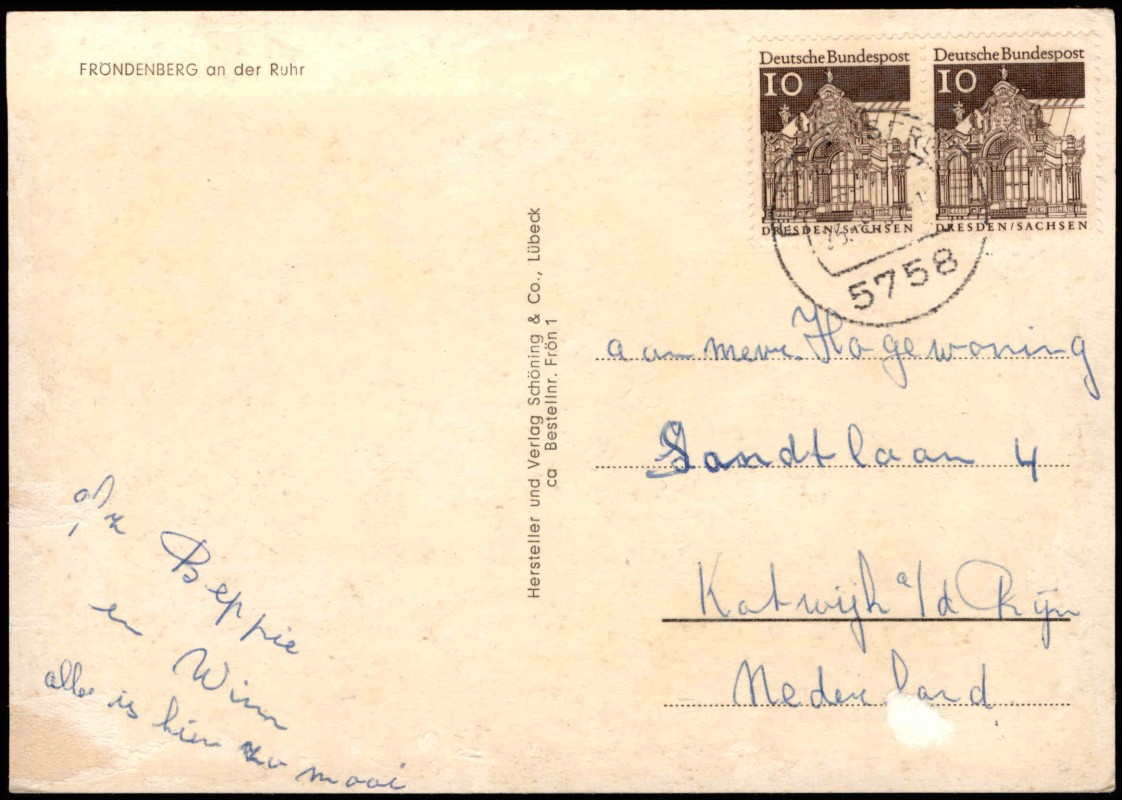 FRÖNDENBERG an der Ruhr
Deutsche Bundespost
10
DRESDEN/SACHSEN
Deutsche Bundespost
10
DRESDEN/SACHSEN
5758
Hersteller und Verlag Schöning & Co., Lübeck
ca Bestellnr. Frön 1
aan mevr. Hogewoning
Sandtlaan 4
Katwijk a/d Rijn
Nederland
Beppie
en Wim
alles is hier zo mooi